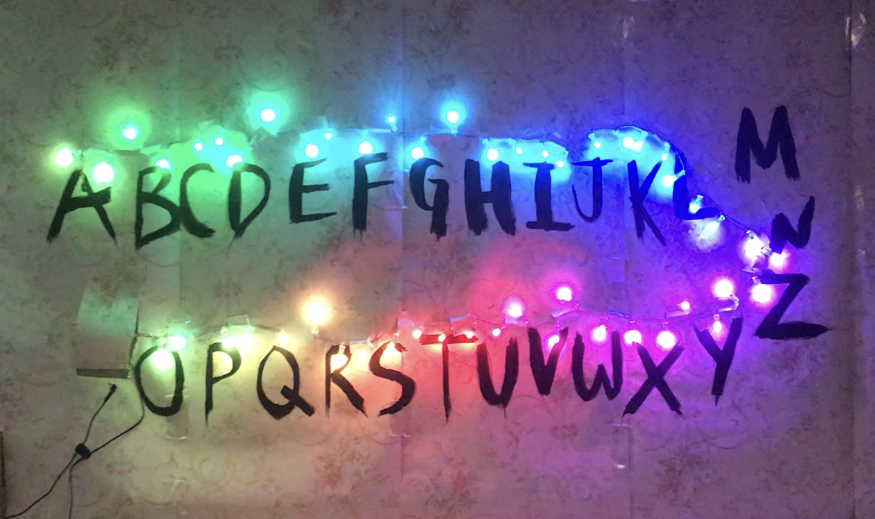 ABCDEFGHIJKL
M
N
Z
OPQRSTUVWXY